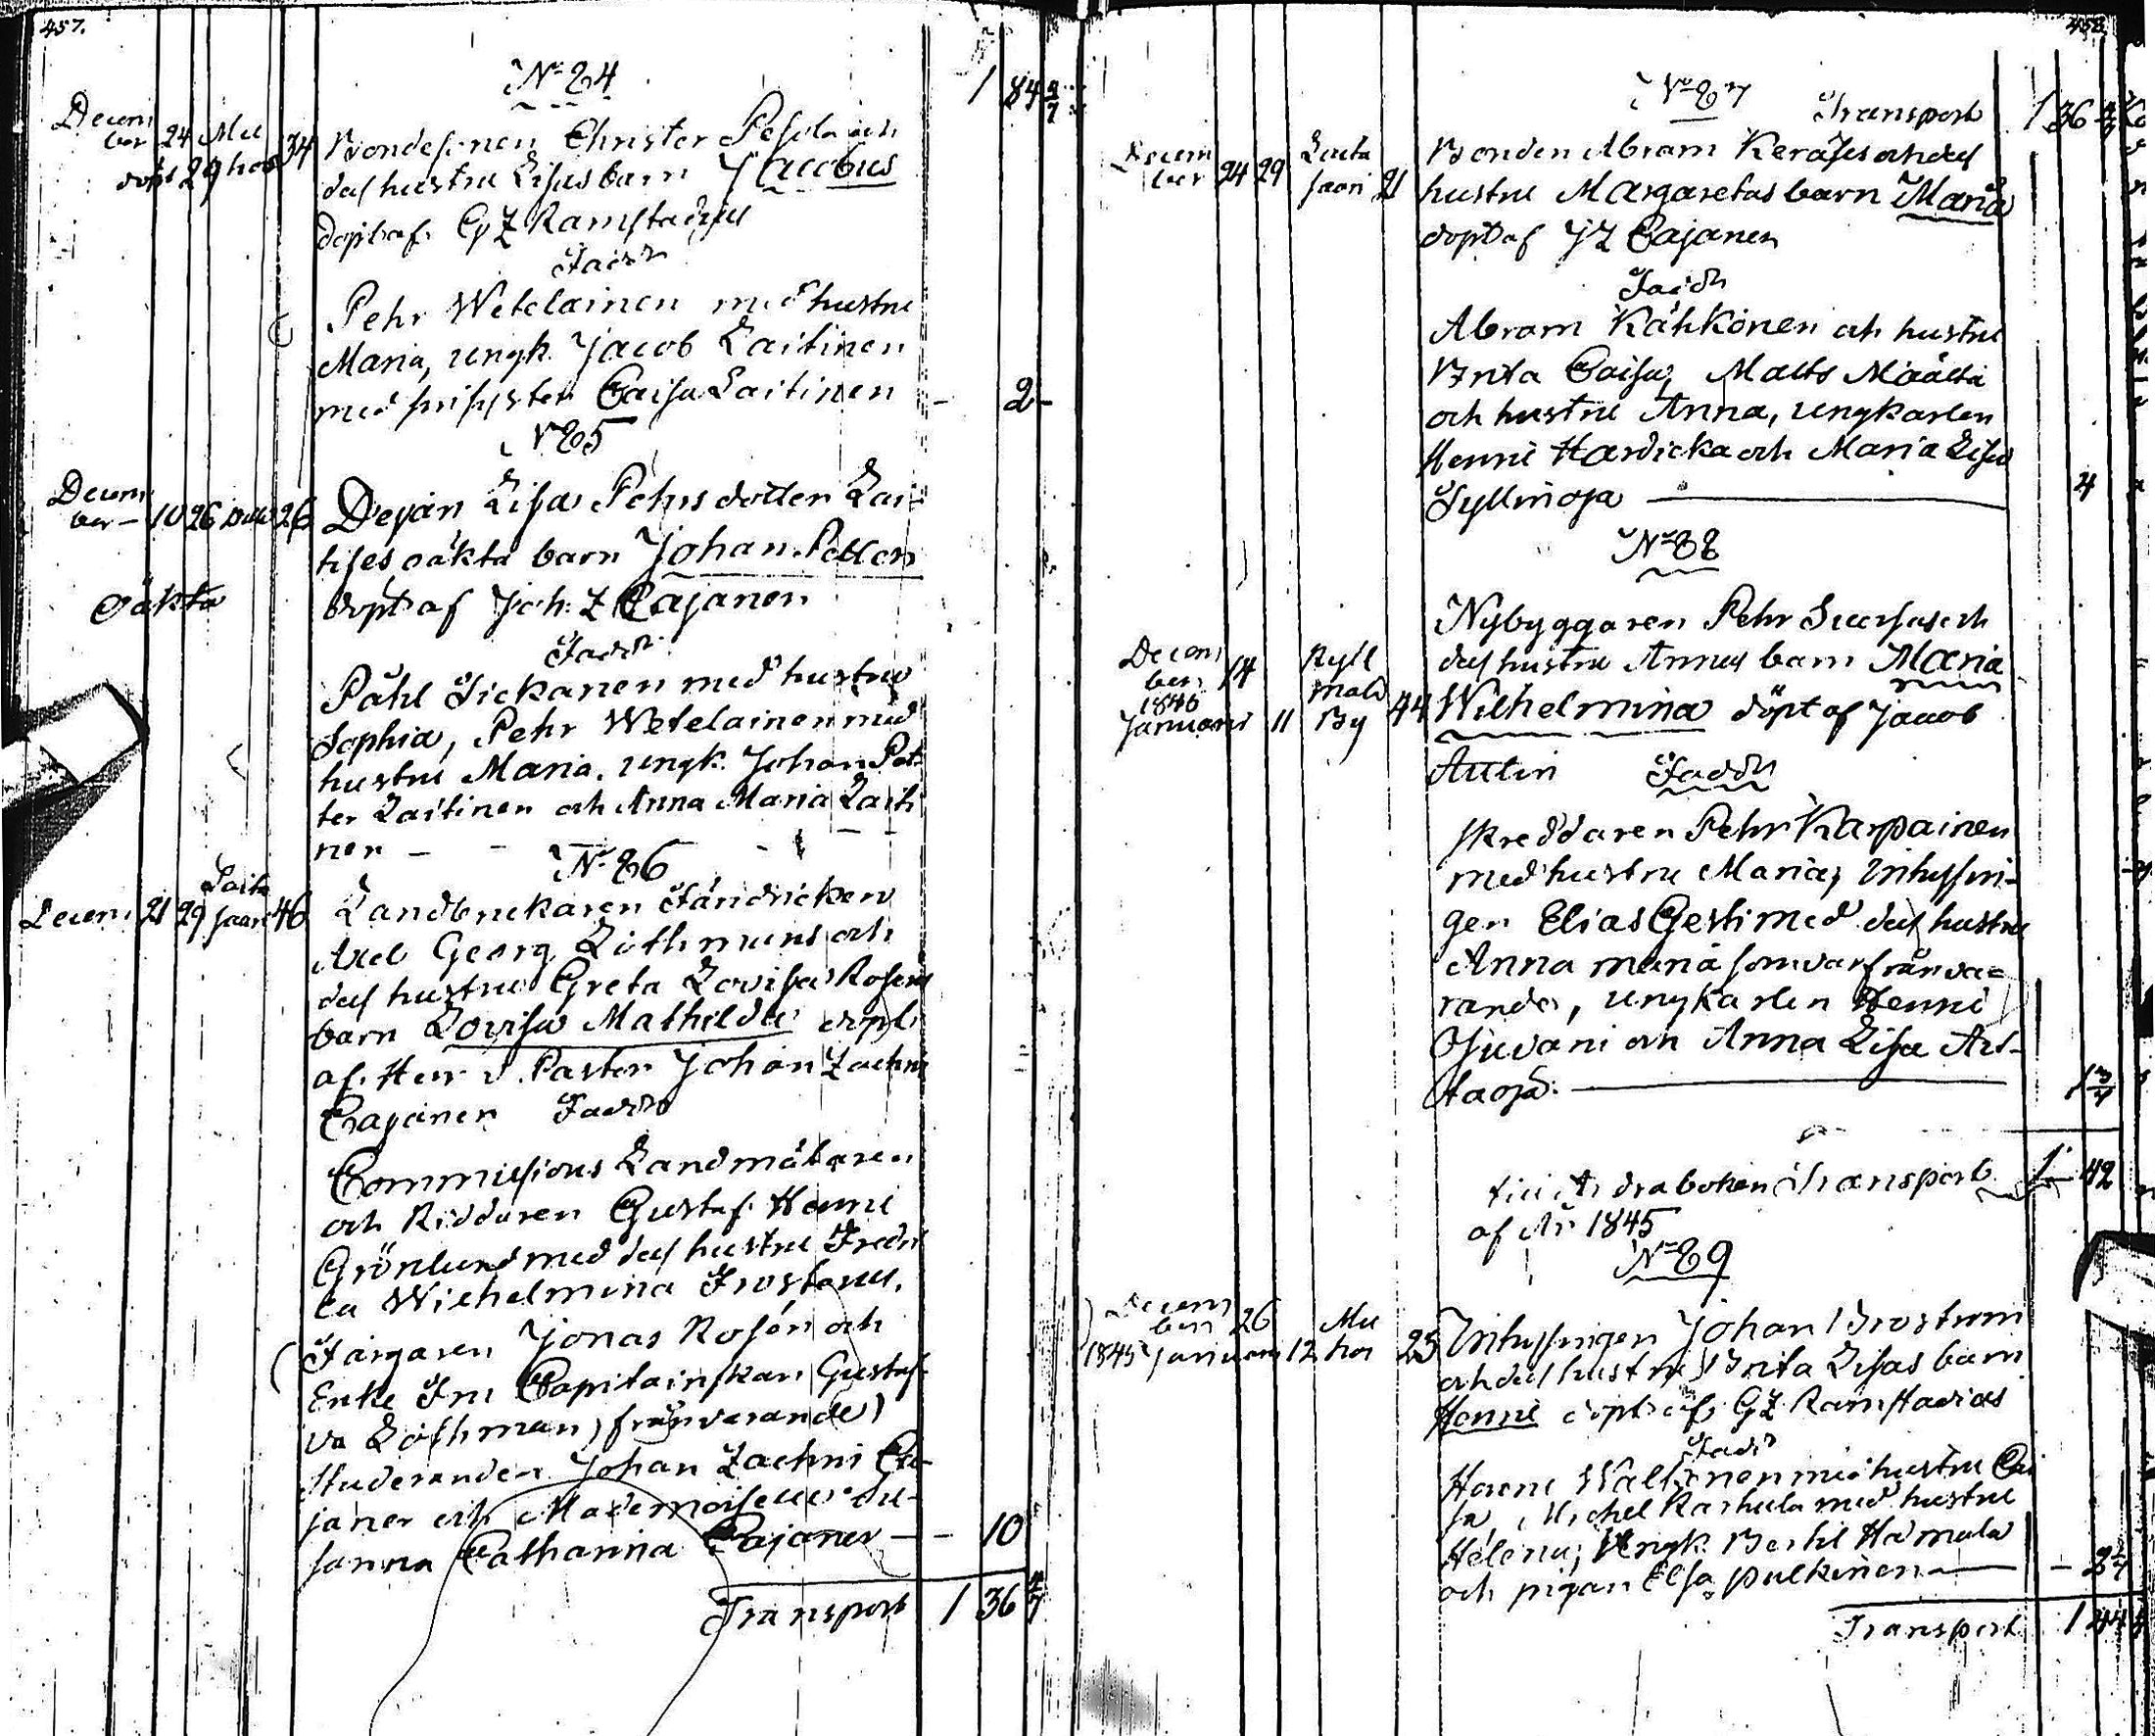 457.
No 84
1 84 2/7
Decem
ber 24 Mu
döpt 29 hos 34
Bondesonen Christer Pesola och
dess hustru Lisas barn Jacobus
döpt af G Z Ramstadius
Fadd
Pehr Wetelainen med hustru
Maria, ungk. Jacob Laitinen
med Caisa Laitinen - 2 -
No 85
Decem
ber - 10 26 26
oäkta
Deyan Lisa Pehrsdotter Lai-
tises oäkta barn Johan Petter
döpt af Joh. Z Cajanen
Fadd
Påhl Sickanen med hustru
Sophia, Pehr Wetelainen med
hustru Maria. ungk. Johan Pet
ter Laitinen och Anna Maria Laiti
nen - -
No 86
Decem 21 29 Saari 46
Landbrukaren Fändricken
Axel Georg Löthmans och
dess hustrus Greta Lovisa Rosens
barn Lovisa Mathilda döpt
af Herr v. Pastor Johan Zachris
Cajanen Fadd
Commissions Landmätaren
och Riddaren Gustaf Henric
Grönlund med dess hustru Fredri
ca Wilhelmina Frosterus,
Färgaren Jonas Rosén och
Enke Fru Capitainskan Gustaf
va Löthman) frånvarande)
Studeranden Johan Zachris Ca-
janer och Mademoiselle Su-
sanna Catharina Cajaner - - 10
Transport 1 36 2/7
458
No 87
Transport 1 36
Decem
ber 24 29 Saari 21
Bonden Abram Keräses och dess
hustru Margaretas barn Maria
döpt af J Z Cajanen
Fadd
Abram Kähkönen och hustru
Brita Caisa, Matts Määttä
och hustru Anna, ungkarlen
Henric Hardicka och Maria Lisa
Syllinoja 4
No 88
Decem
ber 14
1846
Januarii 11 By 44
Nybyggaren Pehr och
dess hustru Annas barn Maria
Wilhelmina döpt af Jacob
Autin Fadd
Skreddaren Pehr Karpainen
med hustru Maria, Inhyssin-
gen Elias Gerti med dess hustru
Anna Maria som var frånva-
rande, ungkarlen Henric
Ojuvani och Anna Lisa Au-
taoja. 1 3/4
Transport 1 42
af År 1845
No 89
Decem
ber 26 Mu
1845 Januarii 12 hos 25
Inhyssingen Johan Broström
och dess hustru Brita Lisas barn
Henric döpt af G Z Ramstadius
Fadd
Henric Waltanen med hustru Cai
sa, Michel Karhula med hustru
Helena, Ungk Bertil Hamula
och pigan Elsa Pulkinen - 2 1/4
Transport 1 44